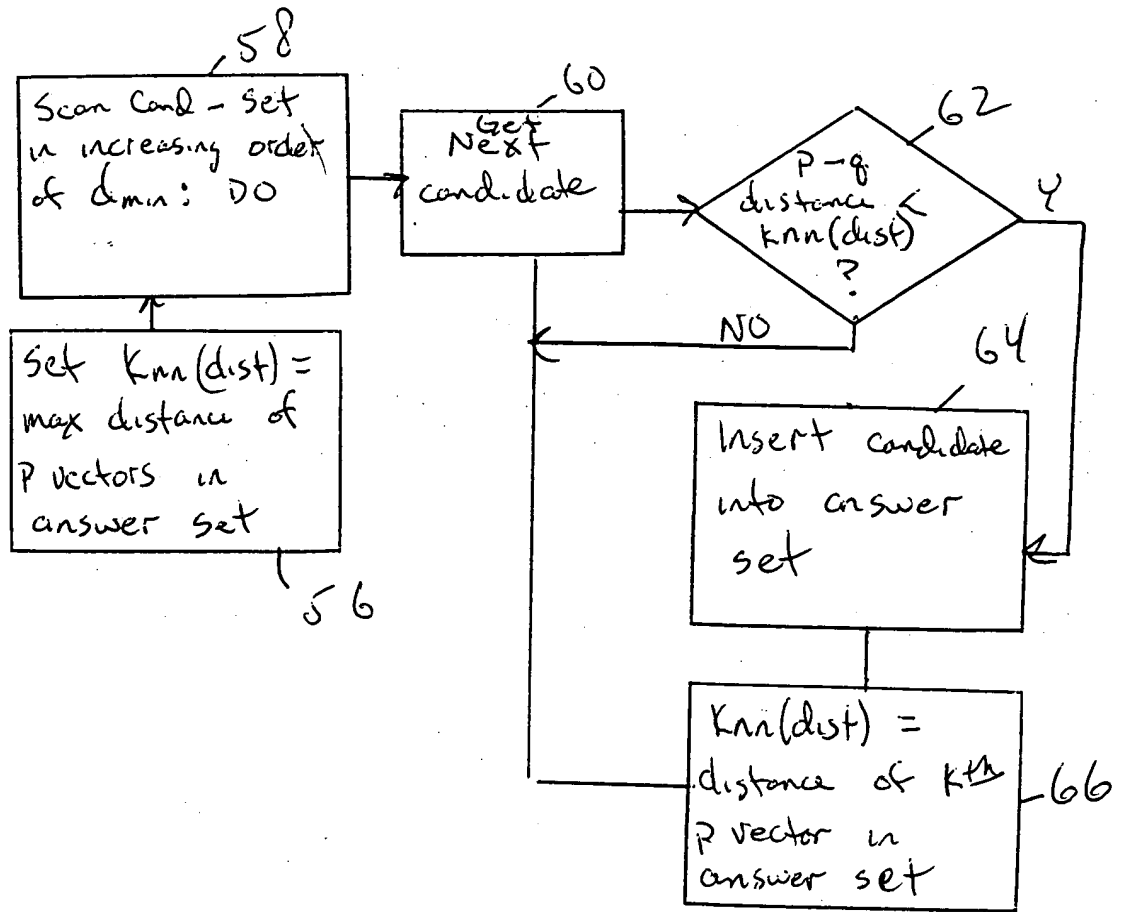 58
Scan Cand - Set
in increasing order
of dmin: DO
60
Get
Next
candidate
62
p-q
distance <
knn(dist)
?
Y
NO
Set Knn(dist) =
max distance of
P vectors in
answer set
56
64
Insert candidate
into answer
set
Knn(dist) =
distance of Kth
P vector in
answer set
66